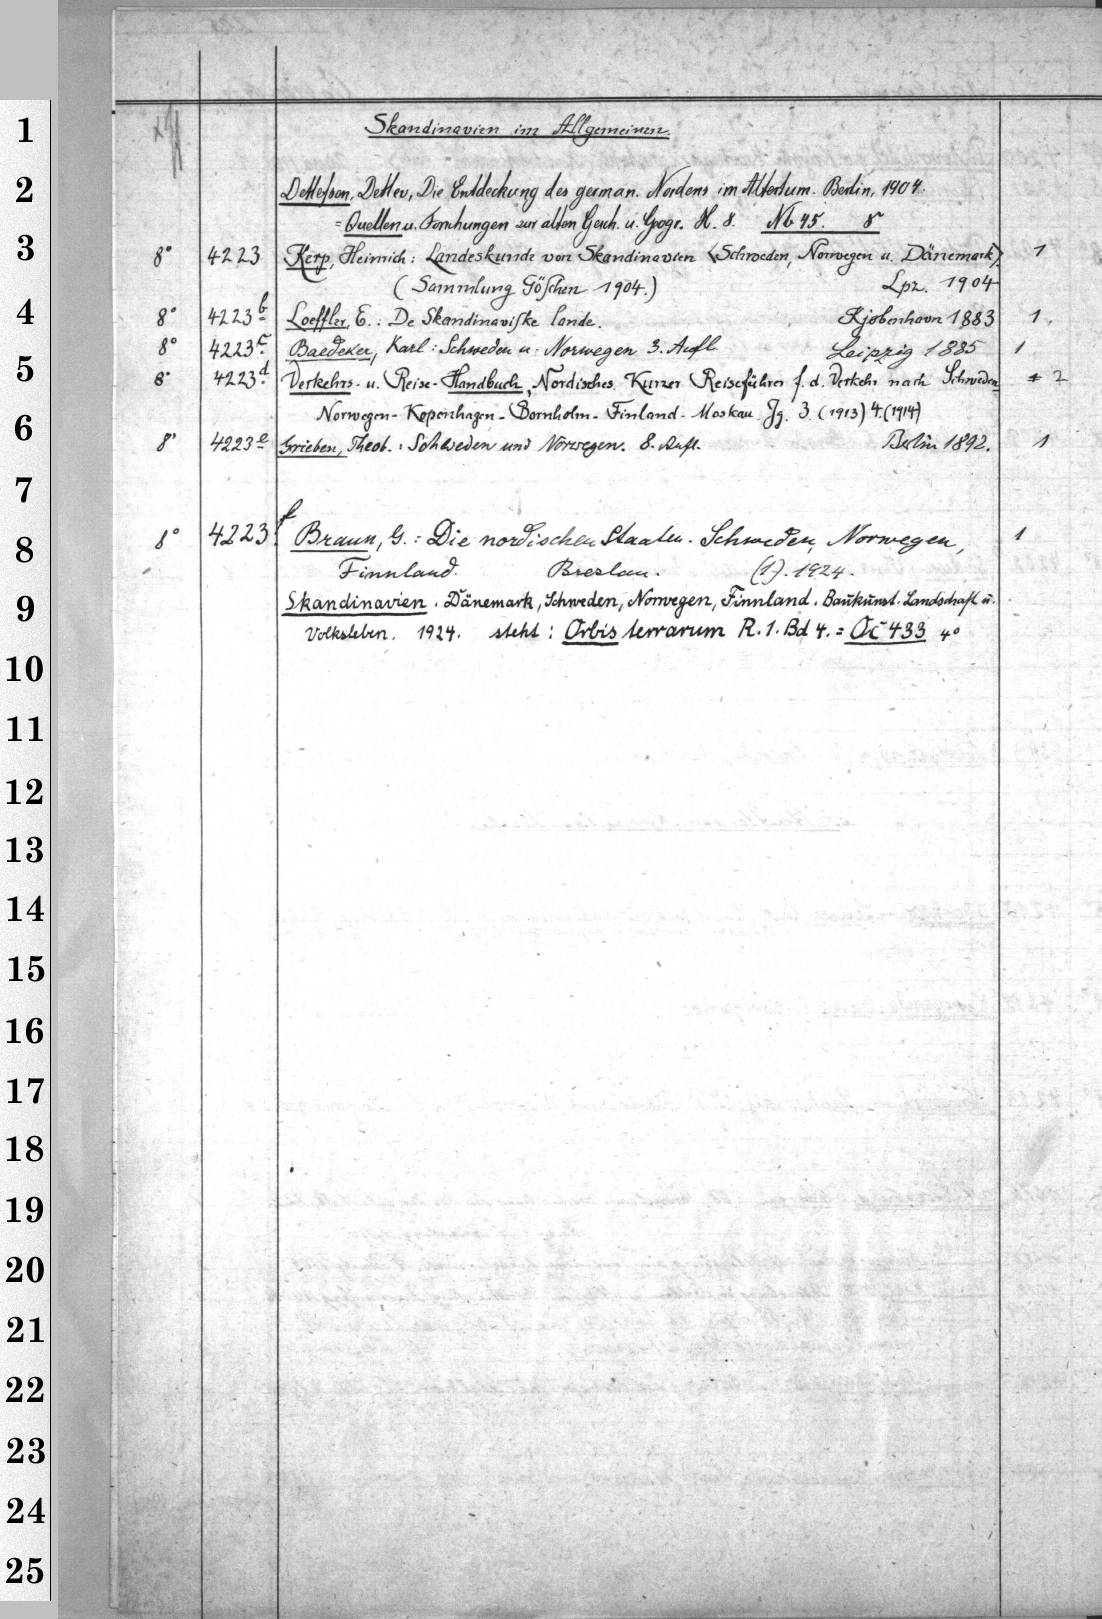 Skandinavien im Allgemeinen.
1
2
Detlefson, Detlev, Die Entdeckung des german. Nordens im Altertum. Berlin, 1904.
= Quellen u. Forschungen zur alten Gesch. u. Geogr. H. 8. Nb 45. 8°
3
8° 4223 Kerp, Heinrich: Landeskunde von Skandinavien <Schweden, Norwegen u. Dänemark>. 1
(Sammlung Göschen 1904.) Lpz. 1904
4
8° 4223 b Loeffler, E.: De Skandinaviske lande. Kjobenhavn 1883 1.
8° 4223 c. Baedeker, Karl: Schweden u. Norwegen 3. Aufl. Leipzig 1885 1
5
8° 4223 d. Verkehrs- u. Reise-Handbuch, Nordisches. Kurzer Reiseführer f. d. Verkehr nach Schweden 2
Norwegen - Kopenhagen - Bornholm - Finland - Moskau. Jg. 3. (1913) 4. (1914)
6
8° 4223 e Grieben, Theob.: Schweden und Norwegen. 8. Aufl. Berlin 1892. 1
7
8° 4223 f. Braun, G.: Die nordischen Staaten. Schweden, Norwegen, 1
8
Finnland. Breslau. (1). 1924.
9
Skandinavien. Dänemark, Schweden, Norwegen, Finnland. Baukunst. Landschaft u.
Volksleben. 1924. steht: Orbis terrarum R. 1. Bd 4. = Oc 433 4°
10
11
12
13
14
15
16
17
18
19
20
21
22
23
24
25